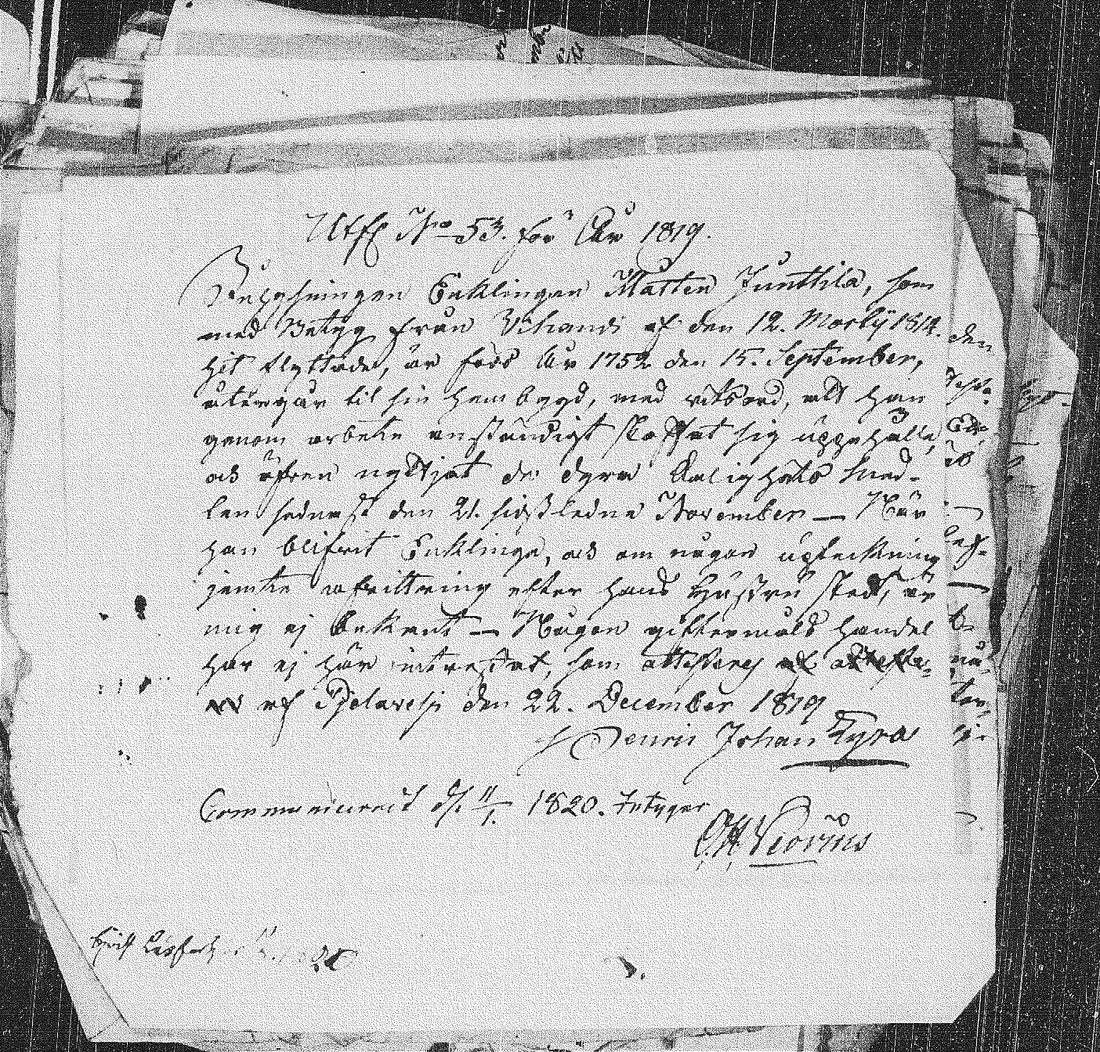 Utfl No 53. för År 1819.
Inhysningen Enklingen Matten Junttila, som
med Betyg från Vihandi af den 12. Martÿ 1814.
hit flyttade, är född År 1752 den 15. September,
återgår til sin hembygd, med vitsord, att han
genom arbete anständigt skaffat sig uppehälle,
och äfven nyttjat de dyra Salighets Med-
len sednast den 21. sidstledne November — När
han blifvit Enkling, och om någon upteckning
jemte afvittring efter hans Hustru skedt, är
mig ej bekant — Någon giftermåls handel
har ej här intreffat, som attesteras
af Pjelavesi den 22. December 1819
Henric Johan Tyra
Communicerat d. 11/1. 1820. Intygar
Veorius
den